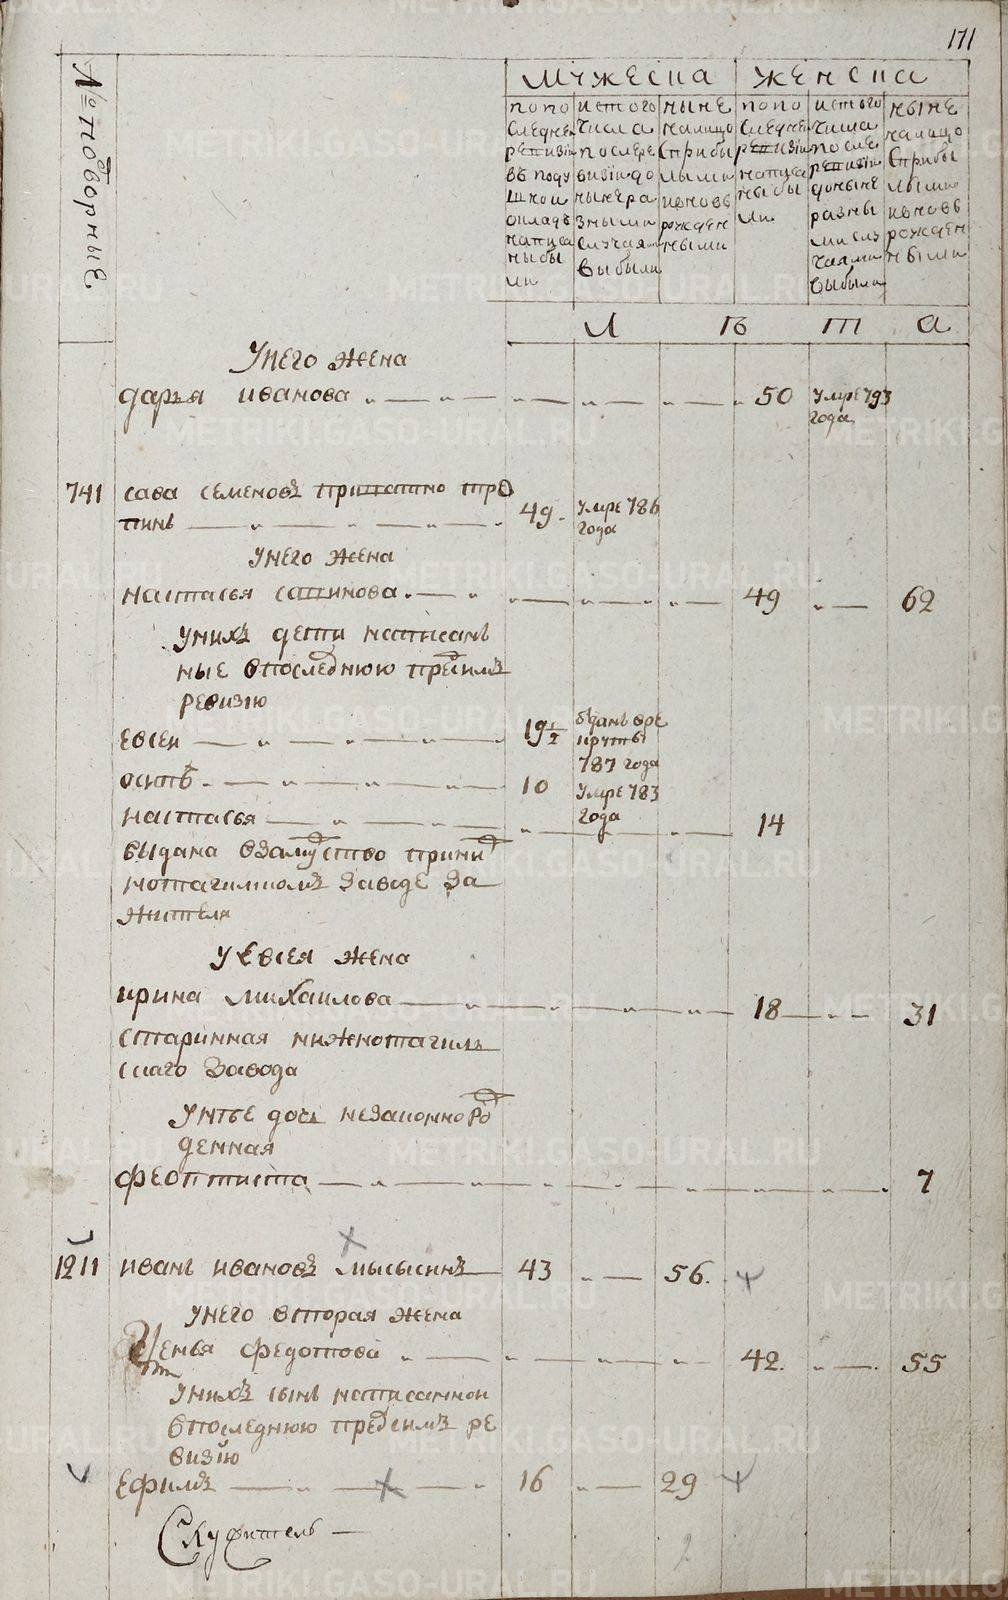 171
№ подворные
мужеска
женска
по по
следней
ревизiи
въ поду
шной
окладъ
написа
ны бы
ли
ис того
числа
после ре
визiи до
ныне ра
зными
случаями
выбыли
ныне
налицо
с прибы
лыми
и вновь
рожден
ными
по по
следней
ревизiи
написа
ны бы
ли
ис того
числа
после
ревизiи
доныне
разны
ми слу
чаями
выбыли
ныне
налицо
с прибы
лыми
и вновь
рожден
ными
л ѣ т а
У него жена
дарья иванова 50 умре 793
года
741 сава семеновъ
пинъ 49 умре 786
года
У него жена
настасья савинова 49 62
У нихъ дети написан
ные в последнюю пред симъ
ревизiю
евсеи 19 1/2 отданъ в ре
круты
787 года
осипъ 10 умре 783
года
настасья 14
выдана в замуство при ни
жнотагилскомъ заводе за
жителя
У евсея жена
ирина михаилова 18 31
старинная нижнотагиль
скаго завода
У нее дочь незаконно ро
денная
феоктиста 7
1211 иванъ ивановъ мысыкинъ 43 56
У него вторая жена
федотова 42 55
У нихъ сынъ написанной
в последнюю пред симъ ре
визiю
ефимъ 16 29
2
METRIKI.GASO-URAL.RU